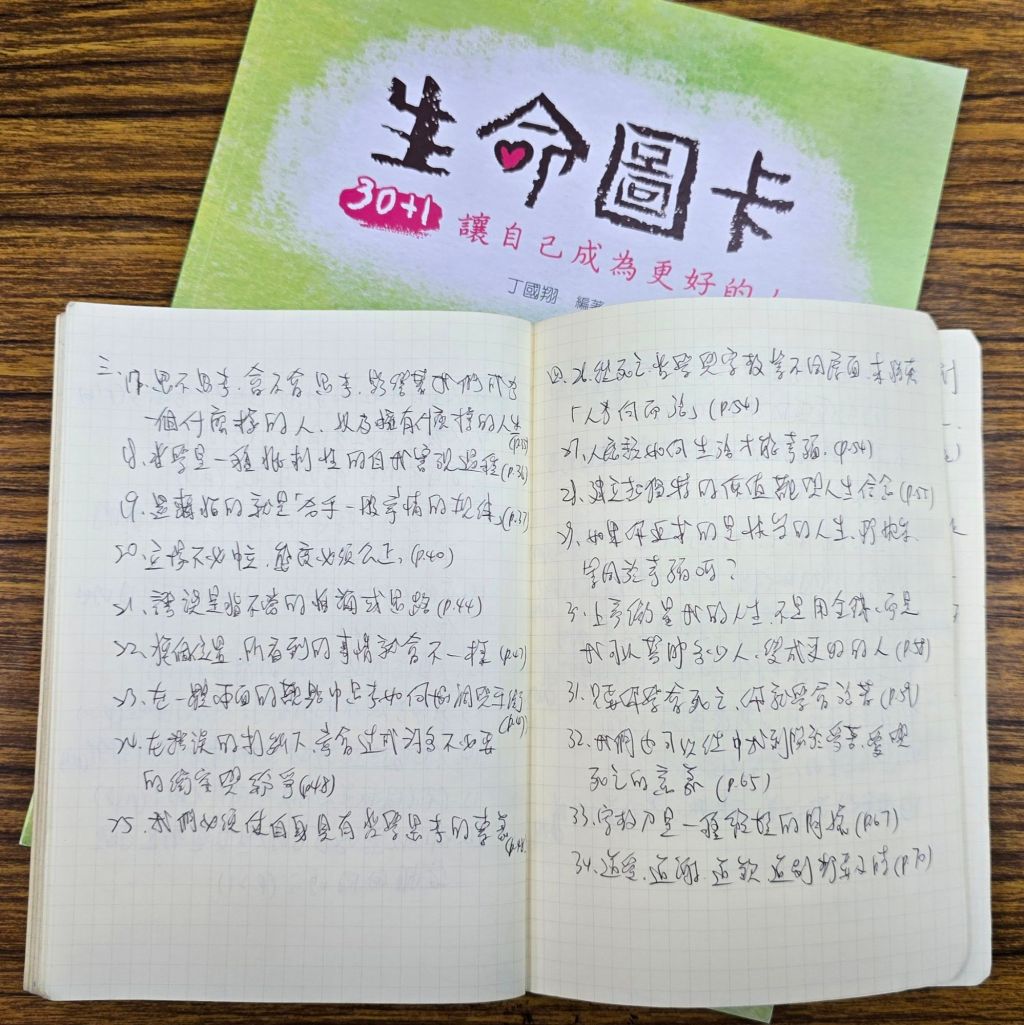 生命圖卡
30+1 讓自己成為更好的
丁國翔 編著
三、17. 思不思考、會不會思考,影響著我們成為
一個什麼樣的人,以及擁有什麼樣的人生
(p.35)
18. 哲學是一種批判性的自我客觀過程(p.36)
19. 邏輯指的就是「合乎一般事情的規律」(p.37)
20. 立場不必中立,態度必須公正,(p.40)
21. 謬誤是指不當的推論或思路(p.44)
22. 換個位置,所看到的事情就會不一樣(p.47)
23. 在一體兩面的難題中思考如何協調與平衡
(p.47)
24. 在謬誤的判斷下,常會造成許多不必要
的衝突與紛爭(p48)
25. 我們必須使自身具有哲學思考的素養
四、26. 從死亡、哲學與宗教等不同層面,來探索
「人為何而活」(p.54)
27. 人應該如何生活才能幸福,(p.54)
28. 建立起獨特的價值觀與人生信念(p.55)
29. 如果你追求的是快樂的人生,那快樂
等同於幸福嗎?
30. 上帝衡量我的人生,不是用金錢,而是
我可以幫助多少人,變成更好的人(p.58)
31. 只要你學會死亡,你就學會活著(p.59)
32. 我們也可以從中找到關於受苦、愛與
死亡的意義 (p.65)
33. 宗教乃是一種終極的關懷(p67)
34. 道愛、道謝、道歉、道別都要及時(p.70)